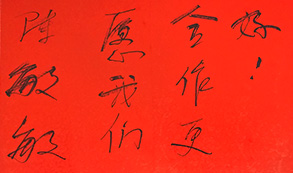 陈敏敏
愿我们
合作更
好！